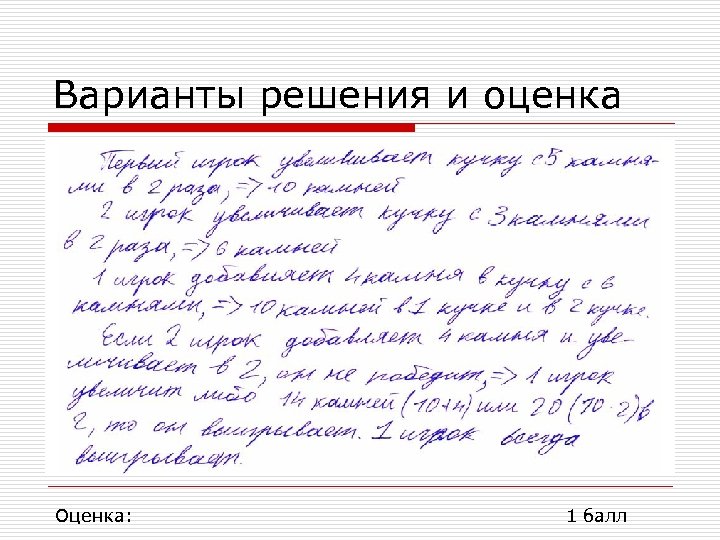 Варианты решения и оценка
Первый игрок увеличивает кучку с 5 камня-
ми в 2 раза, => 10 камней
2 игрок увеличивает кучку с 3 камнями
в 2 раза, => 6 камней
1 игрок добавляет 4 камня в кучку с 6
камнями, => 10 камней в 1 кучке и в 2 кучке.
Если 2 игрок добавляет 4 камня и уве-
личивает в 2, он не победит, => 1 игрок
увеличит либо 14 камней (10+4) или 20 (10·2) в
2, то он выигрывает. 1 игрок всегда
выигрывает.
Оценка: 1 балл